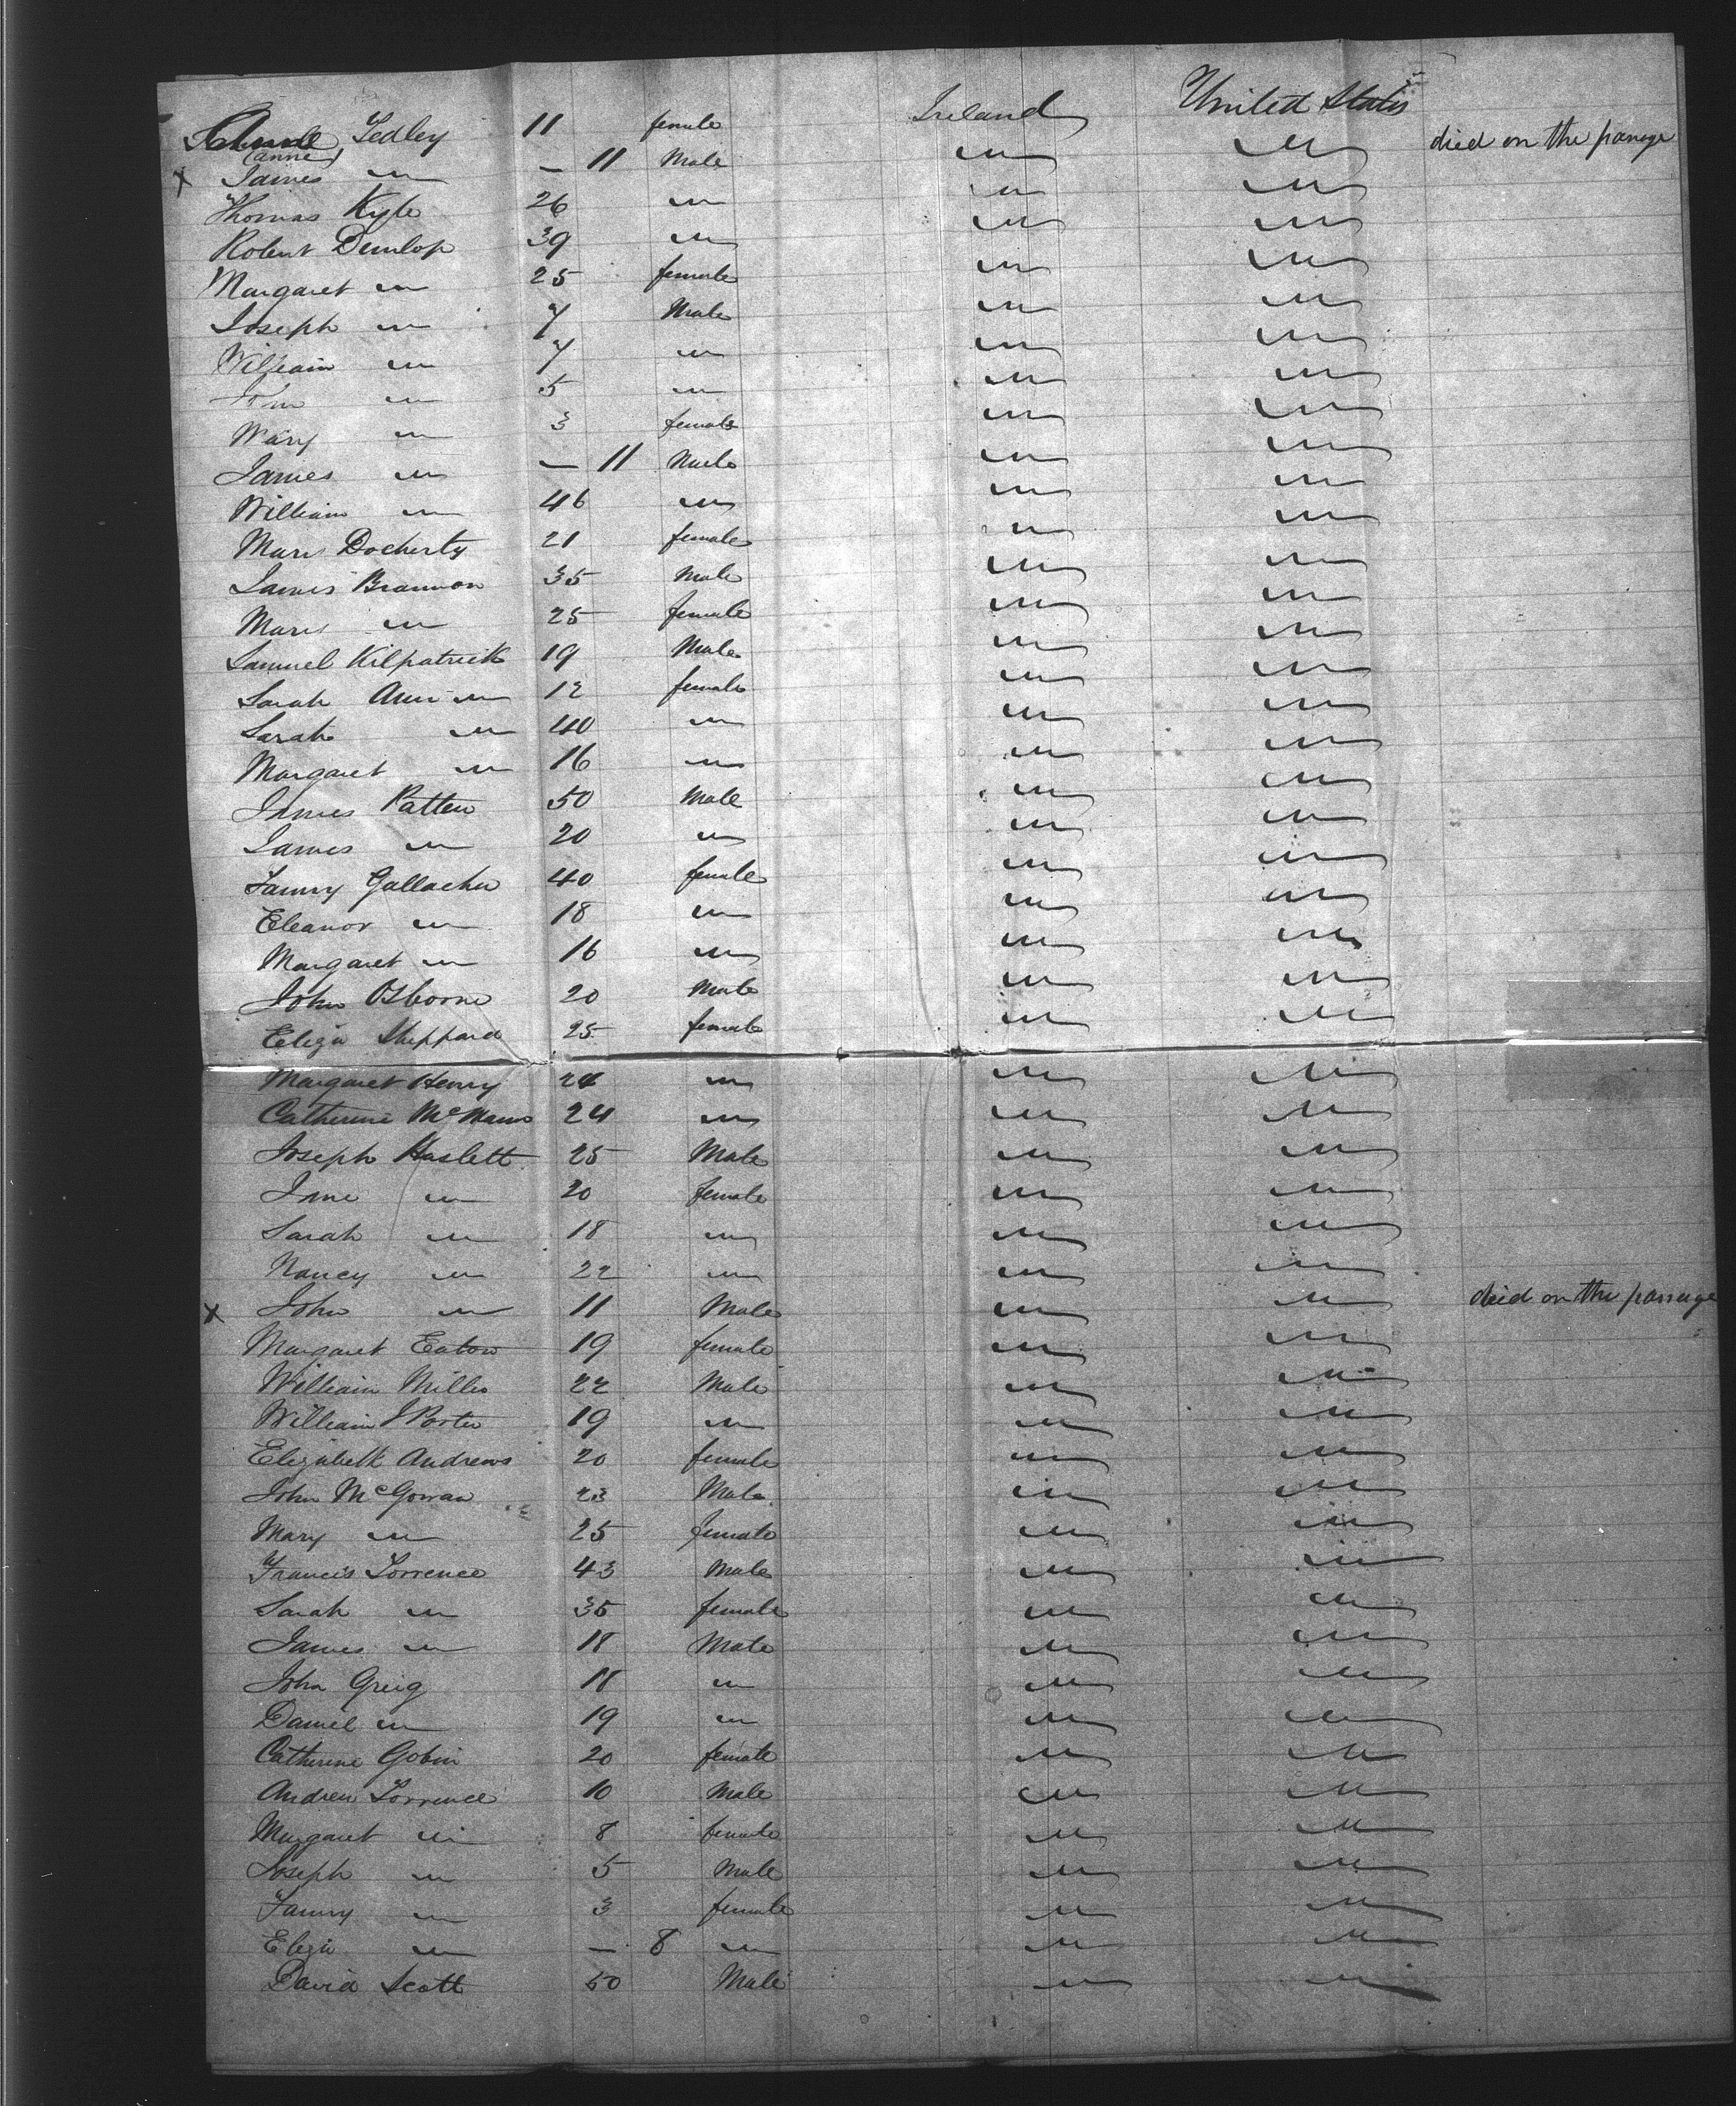 (anne) Tedley 11 female Ireland United States
x James " — 11 Male " " died on the passage
Thomas Kyle 26 " " "
Robert Dunlop 39 " " "
Margaret " 25 female " "
Joseph " 7 Male " "
William " 7 " " "
" 5 " " "
Mary " 3 female " "
James " — 11 Male " "
William " 46 " " "
Mary Docherty 21 female " "
James Brannon 35 Male " "
Mary " 25 female " "
Samuel Kilpatrick 19 Male " "
Sarah Ann " 12 female " "
Sarah " 40 " " "
Margaret " 16 " " "
James Patten 50 Male " "
James " 20 " " "
Fanny Gallacher 40 female " "
Eleanor " 18 " " "
Margaret " 16 " " "
John Osborne 20 Male " "
Eliza Sheppard 25 female " "
Margaret Henry 24 " " "
Catherine McManus 24 " " "
Joseph Haslett 25 Male " "
Jane " 20 female " "
Sarah " 18 " " "
Nancy " 22 " " "
x John " 11 Male " " died on the passage
Margaret Eaton 19 female " "
William Miller 22 Male " "
William J Porter 19 " " "
Elizabeth Andrews 20 female " "
John McGowan 23 Male " "
Mary " 25 female " "
Francis Torrence 43 Male " "
Sarah " 35 female " "
James " 18 Male " "
John Greig 18 " " "
Daniel " 19 " " "
Catherine Gobin 20 female " "
Andrew Torrence 10 Male " "
Margaret " 8 female " "
Joseph " 5 Male " "
Fanny " 3 female " "
Eliza " — 8 " " "
David Scott 50 Male " "